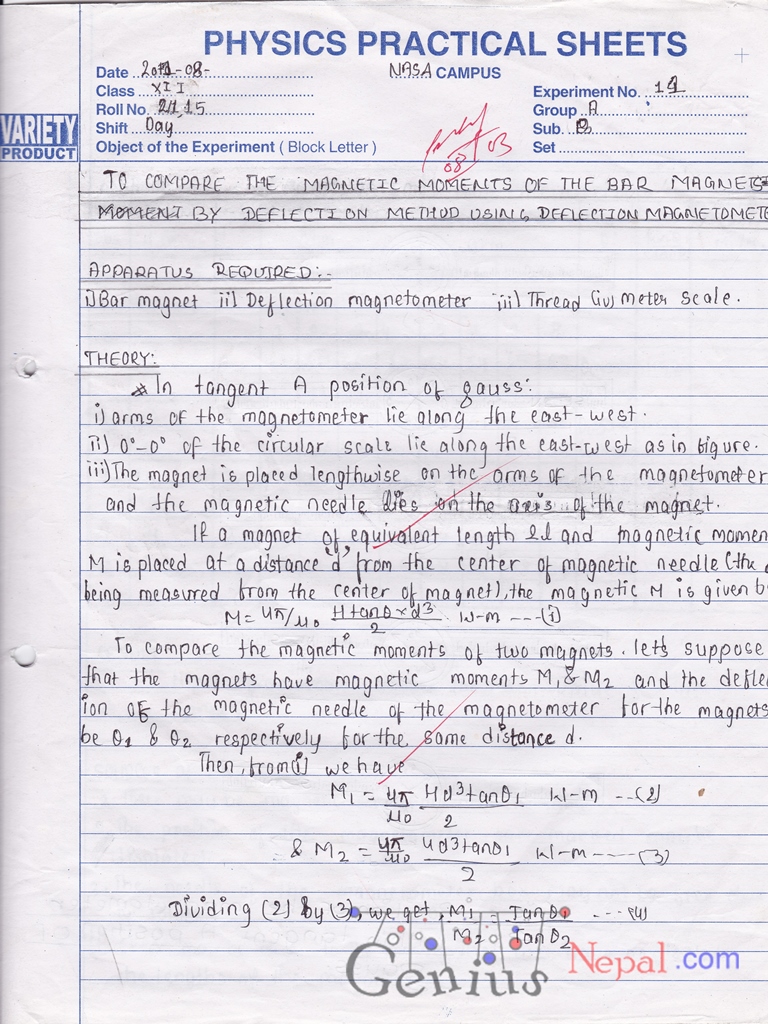 PHYSICS PRACTICAL SHEETS
Date
NASA CAMPUS
Class XII
Experiment No.
Roll No. 2115
Group A
Shift Day
Sub.
VARIETY
PRODUCT
Object of the Experiment ( Block Letter )
Set
08/03
TO COMPARE THE MAGNETIC MOMENTS OF THE BAR MAGNETS
MOMENT BY DEFLECTION METHOD USING DEFLECTION MAGNETOMETE
APPARATUS REQUIRED:-
i) Bar magnet ii) Deflection magnetometer iii) Thread (iv) meter scale.
THEORY:
* In tangent A position of gauss:
i) arms of the magnetometer lie along the east-west.
ii) 0°-0° of the circular scale lie along the east-west as in figure.
iii) The magnet is placed lengthwise on the arms of the magnetometer
and the magnetic needle lies on the axis of the magnet.
If a magnet of equivalent length 2l and magnetic momen
M is placed at a distance 'd' from the center of magnetic needle (the d
being measured from the center of magnet), the magnetic M is given b
M = 4π/μ0 Htanθ×d³/2 W-m ---(i)
To compare the magnetic moments of two magnets. let's suppose
that the magnets have magnetic moments M1 & M2 and the defle
ion of the magnetic needle of the magnetometer for the magnets
be θ1 & θ2 respectively for the same distance d.
Then, from(i) we have
M1 = 4π/μ0 Hd³tanθ1/2 W-m ---(2)
& M2 = 4π/μ0 Hd³tanθ1/2 W-m -----(3)
Dividing (2) by (3), we get, M1/M2 = Tanθ1/Tanθ2 ----(4)
Genius Nepal.com